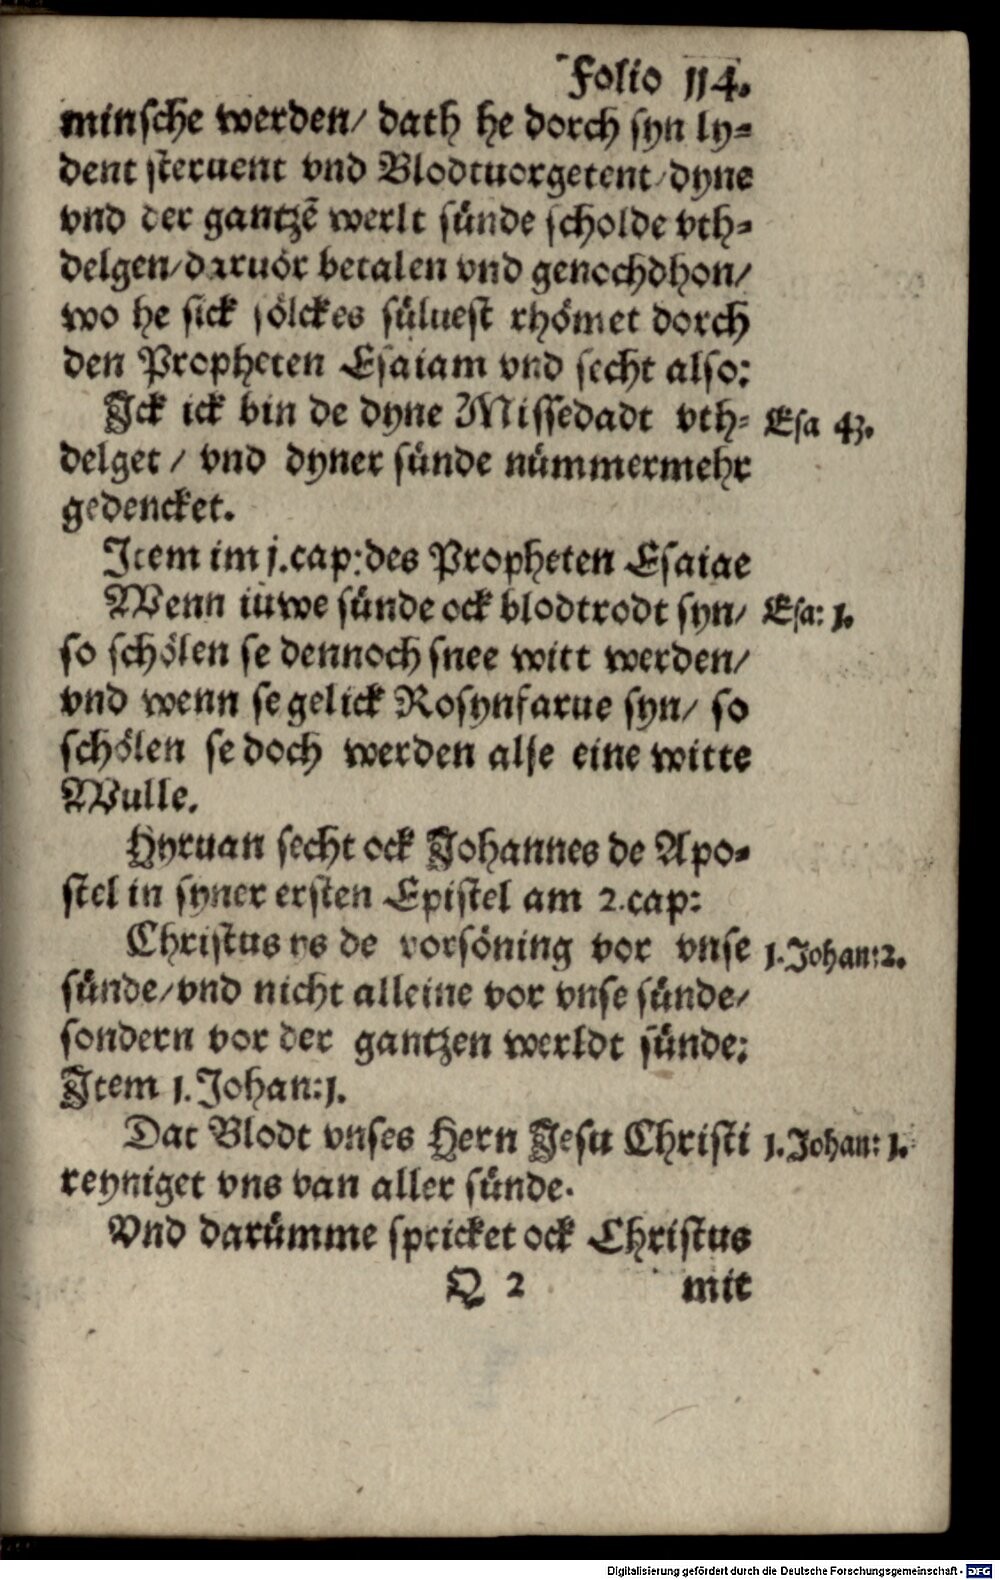 Folio 114.
minsche werden/ dath he dorch syn ly=
dent steruent vnd Blodtuorgetent/ dyne
vnd der gantzē werlt sünde scholde vth=
delgen/ daruör betalen vnd genochdhon/
wo he sick sölckes süluest rhömet dorch
den Propheten Esaiam vnd secht also:
Ick ick bin de dyne Missedadt vth= Esa 43.
delget / vnd dyner sünde nümmermehr
gedencket.
Item im j. cap: des Propheten Esaiae
Wenn iuwe sünde ock blodtrodt syn/ Esa: 1.
so schölen se dennoch snee witt werden/
vnd wenn se gelick Rosynfarue syn/ so
schölen se doch werden alse eine witte
Wulle.
Hyruan secht ock Johannes de Apo=
stel in syner ersten Epistel am 2. cap:
Christus ys de vorsöning vor vnse 1. Johan: 2.
sünde/ vnd nicht alleine vor vnse sünde/
sondern vor der gantzen werldt sünde:
Item 1. Johan: 1.
Dat Blodt vnses Hern Jesu Christi 1. Johan: 1.
reyniget vns van aller sünde.
Vnd darümme spricket ock Christus
Q 2 mit
Digitalisierung gefördert durch die Deutsche Forschungsgemeinschaft - DFG